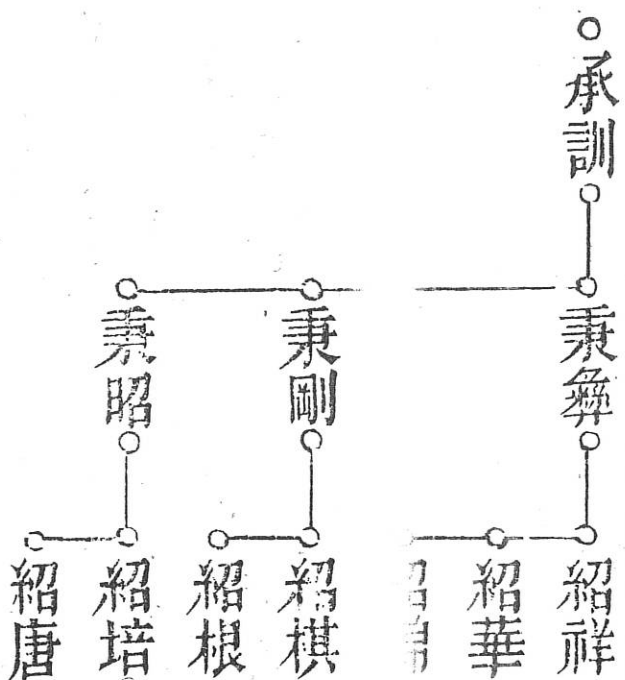 承訓
秉彝
秉剛
秉昭
紹祥
紹華
紹棋
紹根
紹培
紹唐